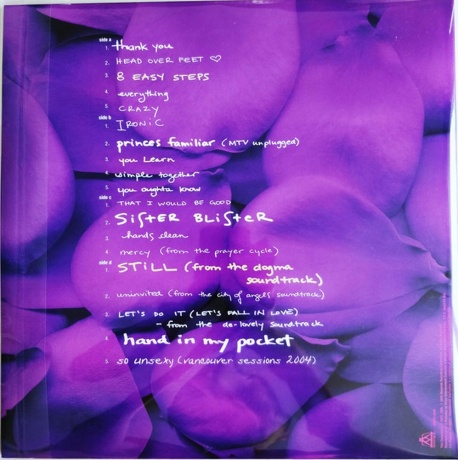 side a
1. thank you
2. HEAD OVER FEET ♡
3. 8 EASY STEPS
4. everything
5. CRAZY
side b
1. IRONiC
2. princes familiar (MTV unplugged)
3. you Learn
4. simple together
5. you oughta know
side c
1. THAT I WOULD BE GOOD
2. SiSTER BLiSTeR
3. hands clean
4. mercy (from the prayer cycle)
side d
1. STiLL (from the dogma
soundtrack)
2. uninvited (from the city of angels soundtrack)
3. LET'S DO IT (LET'S FALL IN LOVE)
- from the de-lovely soundtrack
4. hand in my pocket
5. so unsexy (vancouver sessions 2004)